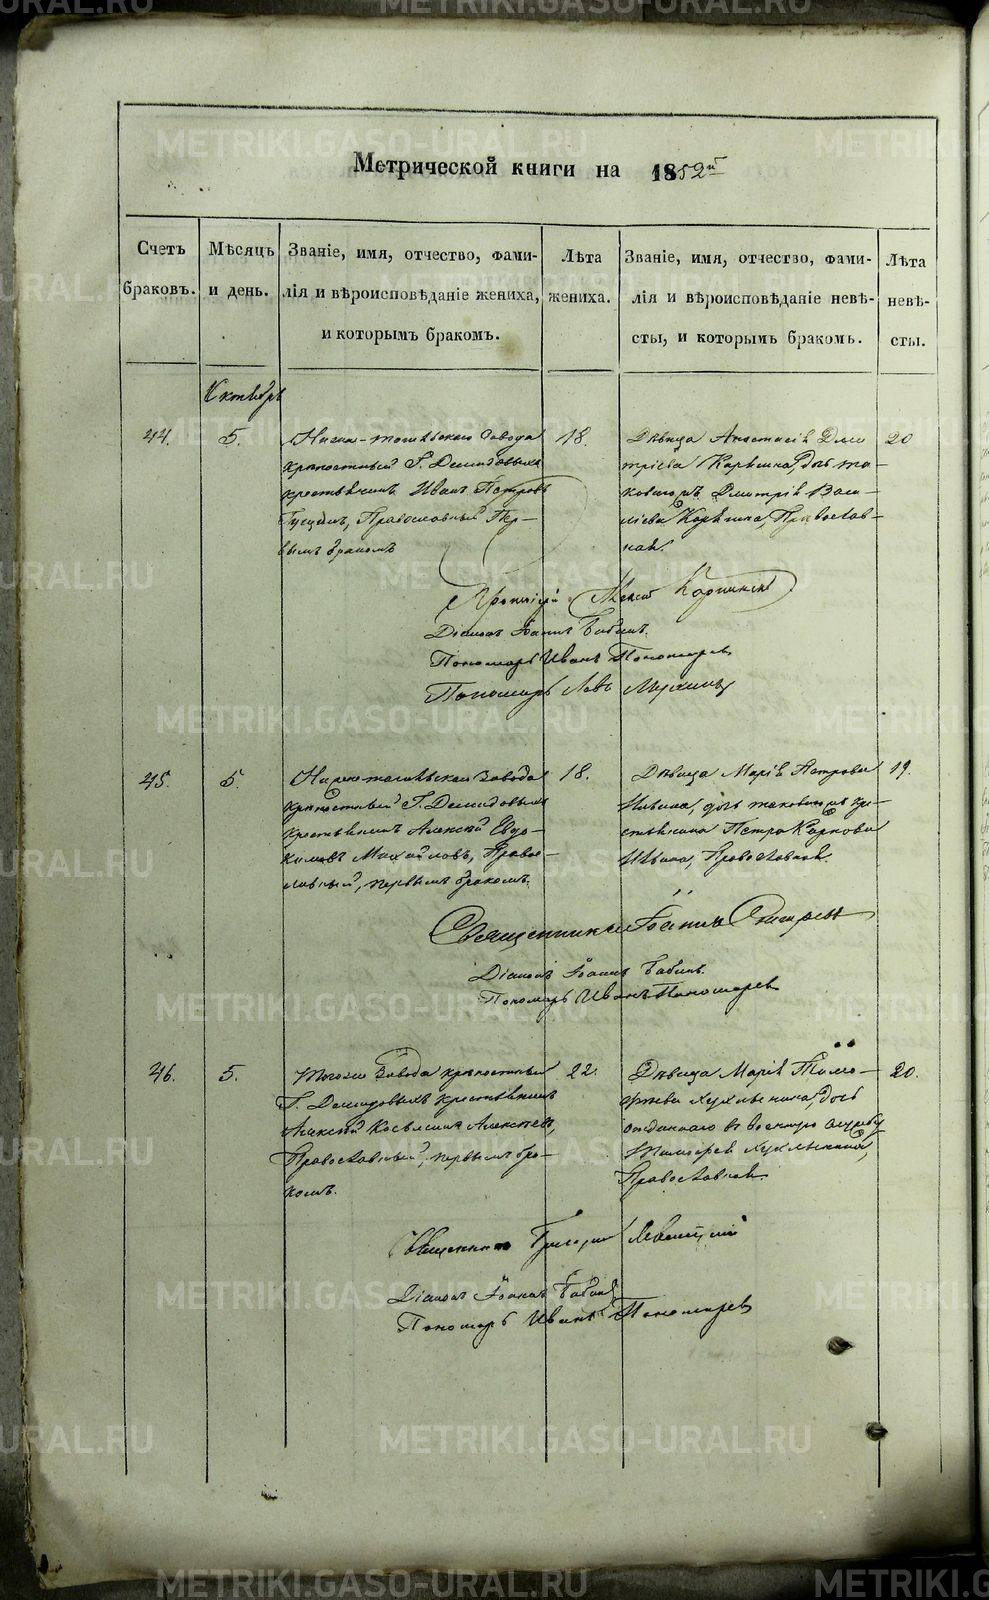 Метрической книги на 1852й
Счетъ браковъ.
Мѣсяцъ и день.
Званіе, имя, отчество, фами-
лія и вѣроисповѣданіе жениха,
и которымъ бракомъ.
Лѣта жениха.
Званіе, имя, отчество, фами-
лія и вѣроисповѣданіе невѣ-
сты, и которымъ бракомъ.
Лѣта невѣ-
сты.
Октябрь
44.
5.
Нижне-тагильскаго Завода
крѣпостный Г. Демидовыхъ
крестьянинъ Иванъ Петровъ
Православный Пер-
вымъ бракомъ
18.
Дѣвица Анастасія Дми
тріева Корякина, дочь та-
коваго жъ Дмитрія Васи-
лієва Корякина, Православ-
ная.
20
Протоіерей
Діаконъ Іоаннъ Бабинъ.
Пономарь Иванъ Пономаревъ
Пономарь Левъ
45.
5.
Нижнетагильскаго Завода
крѣпостный Г. Демидовыхъ
крестьянинъ Алексѣй Евдо-
кимовъ Михайловъ, Право-
славный, первымъ бракомъ.
18.
Дѣвица Марія Петрова
дочь таковаго жъ кре-
стьянина Петра Карпова
Православная.
19.
Священникъ Іоаннъ
Діаконъ Іоаннъ Бабинъ.
Пономарь Иванъ Пономаревъ
46.
5.
Тогоже Завода крѣпостный
Г. Демидовыхъ крестьянинъ
Алексѣй Косьминъ Алексѣевъ,
Православный, первымъ бра-
комъ.
22.
Дѣвица Марія Тимо-
фѣева дочь
отданнаго въ военную службу
Тимофея
Православная.
20.
Священникъ Григорій Левитскій
Діаконъ Іоаннъ Бабинъ
Пономарь Иванъ Пономаревъ
METRIKI.GASO-URAL.RU